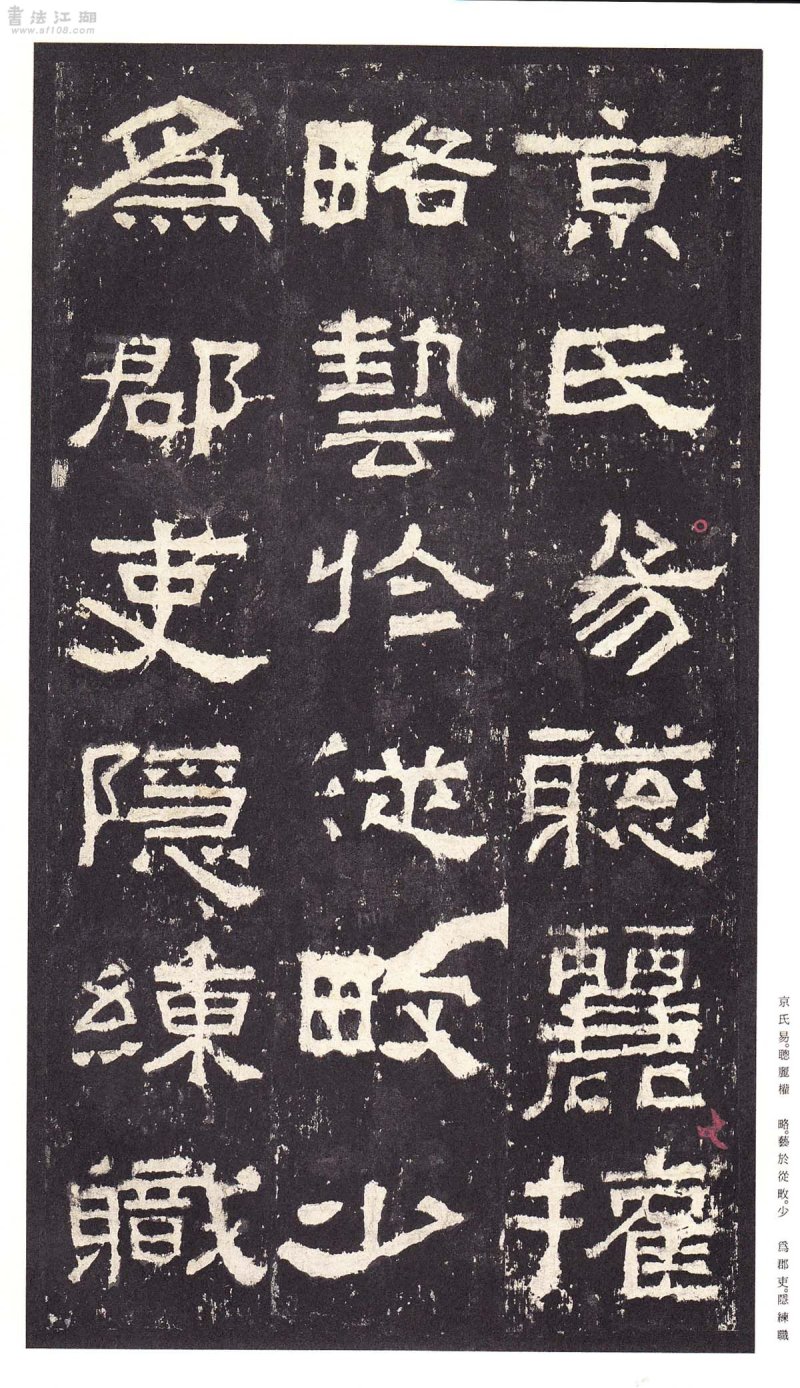 書法江湖
www.af108.com
京氏易聰麗權
略藝於從畋少
為郡吏隱練職
京氏易。聰麗權 略。藝於從畋。少 為郡吏。隱練職